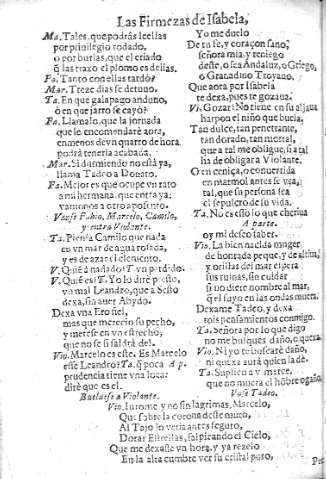 Las Firmezas de Isabela,
Ma. Tales, que podràs leellas
por priuilegio rodado,
o por burlas, que el criado
q̃ las traxo el plomo es dellas.
Fa. Tanto con ellas tardò?
Mar. Treze dias se detuuo.
Ta. En que galapago anduuo,
ò en que jarro se cayò?
Fa. Llamalo, que la jornada
que le encomendarè aora,
en menos de vn quarto de hora
podrà tenerla acabada.
Mar. Si durmiendo no està ya,
llama Tadeo a Donato.
Fa. Mejor es que ocupe vn rato
a mi hermana, que entra ya;
vamonos a otro aposento.
Vanse Fabio, Marcelo, Camilo,
y entra Violante.
Ta. Piensa Camilo que nada
en vn mar de agua rosada,
y es de azar el elemento.
V. Quiẽ à nadado? T. vn perdido.
V. Quiẽ es? T. Yo lo dirè presto,
vn mal Leandro, que a Sesto
dexa, sin auer Abydo.
Dexa vna Ero fiel,
mas que merecio su pecho,
y metese en vn estrecho,
que no se si saldrà del.
Vio. Marcelo es este. Es Marcelo
esse Leandro? Ta. q̃ poca A p.
prudencia tiene vna loca!
dirè que es el.
Buelue se a Violante.
Yo me duelo
De tu fe, y coraçon sano,
señora mia, y reniego
deste, o sea Andaluz, o Griego,
o Granadino Troyano.
Que aora por Isabela
te dexa, pues te gozaua.
Vi. Gozar? No tiene en su aljaua
harpon el niño que buela,
Tan dulce, tan penetrante,
tan dorado, tan mortal,
que a tal me obligue, si a tal
ha de obligar a Violante.
O en ceniça, o conuertida
en marmol antes se vea,
tal, que su persona sea
el sepulcro de su vida.
Ta. No es esso lo que
A parte.
oy mi desco saber.
Vio. La bien nacida muger
de honrada peque, y de altiua,
y orillas del mar espera
sus ruinas, sin cuidar
si vn diere nombre al mar,
q̃ el suyo en las ondas muera.
Dexame Tadeo, y dexa
mis pensamientos conmigo.
Ta. Señora por lo que digo
no me busques daño, o quexa.
Vio. Ni yo te buscarè daño,
ni quexa aurà quien la dè.
Ta. Suplico a v. merce.
que no muera el hõbre ogaño
Vase Tadeo.
Vio. Iurome, y no sin lagrimas, Marcelo,
Que sobre la corona deste muro,
Al Tajo lo veria antes seguro,
Dorar Estrellas, salpicando el Cielo,
Que me dexasse vn hora, y ya rezelo
En la alta cumbre ver su cristal puro,